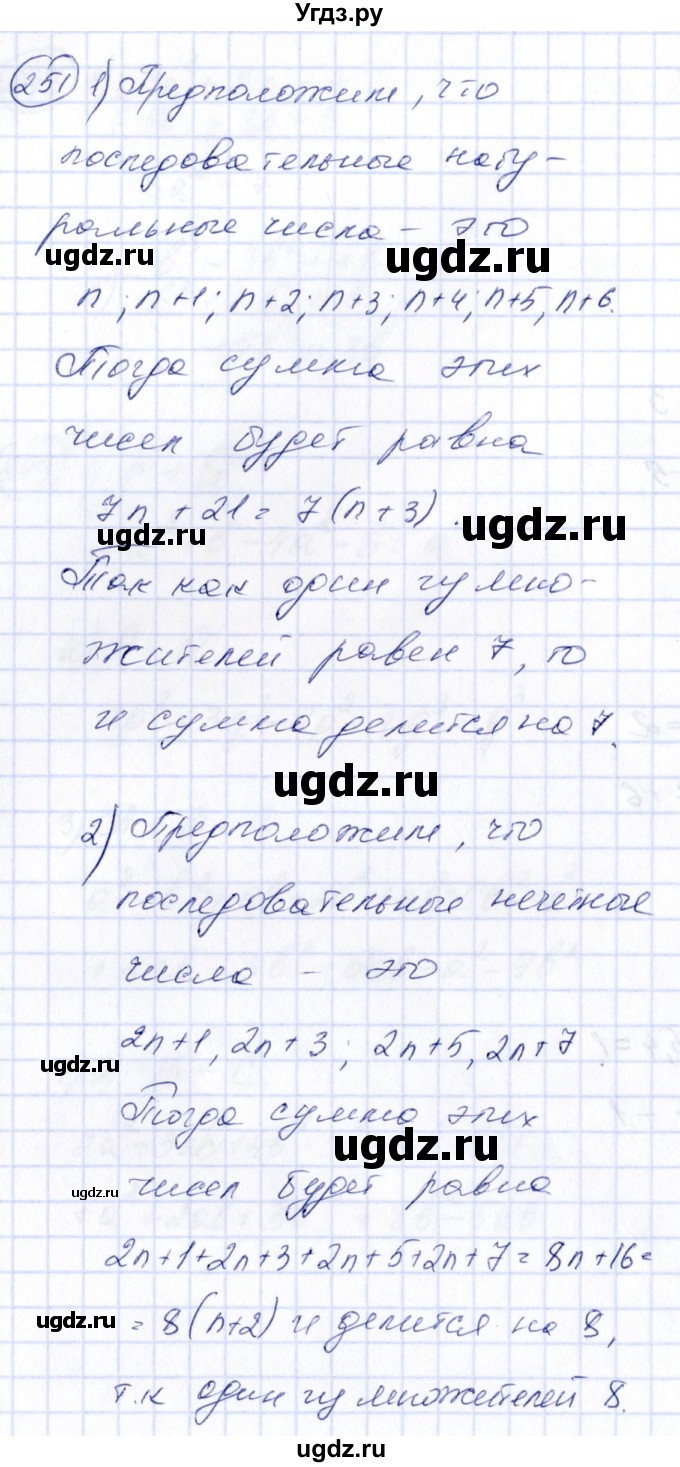 Угдз.ру
251 1) Предположим, что
последовательные нату-
ральные числа - это
ugdz.ru ugdz.ru
n; n+1; n+2; n+3; n+4; n+5, n+6.
Тогда сумма этих
чисел будет равна
7n + 21 = 7(n+3).
ugdz.ru ugdz.ru
Так как один из множ-
жителей равен 7, то
и сумма делится на 7.
ugdz.ru
2) Предположим, что
последовательные нечетные
числа - это
2n+1, 2n+3; 2n+5, 2n+7.
ugdz.ru
Тогда сумма этих
ugdz.ru
ugdz.ru чисел будет равна
2n+1+2n+3+2n+5+2n+7 = 8n+16 =
ugdz.ru = 8(n+2) и делится на 8,
т.к один из множителей 8.
ugdz.ru